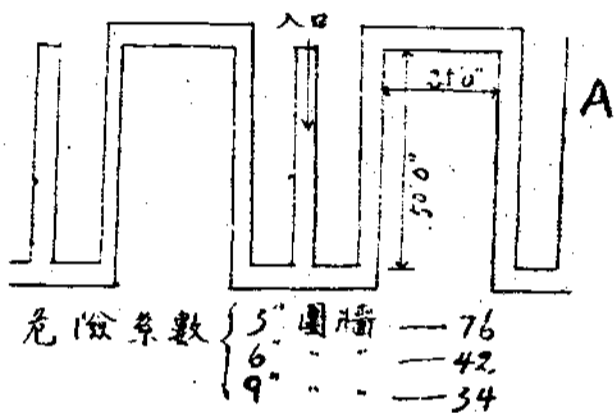 入口
A
25'0"
50'0"
危險系數 { 5" 圍牆 — 76
6" " " — 42
9" " " — 34